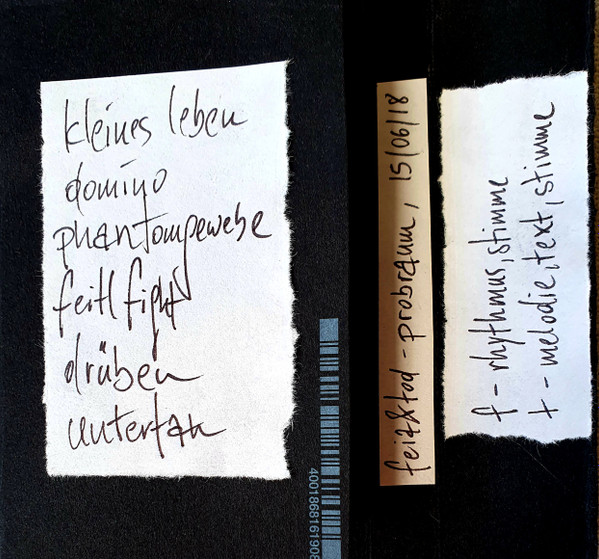 kleines leben
domino
phantomgewebe
feitl fight
drüben
untertan
feia&tod - probraum, 15/06/18
f - rhythmus, stimme
t - melodie, text, stimme
4001868161908